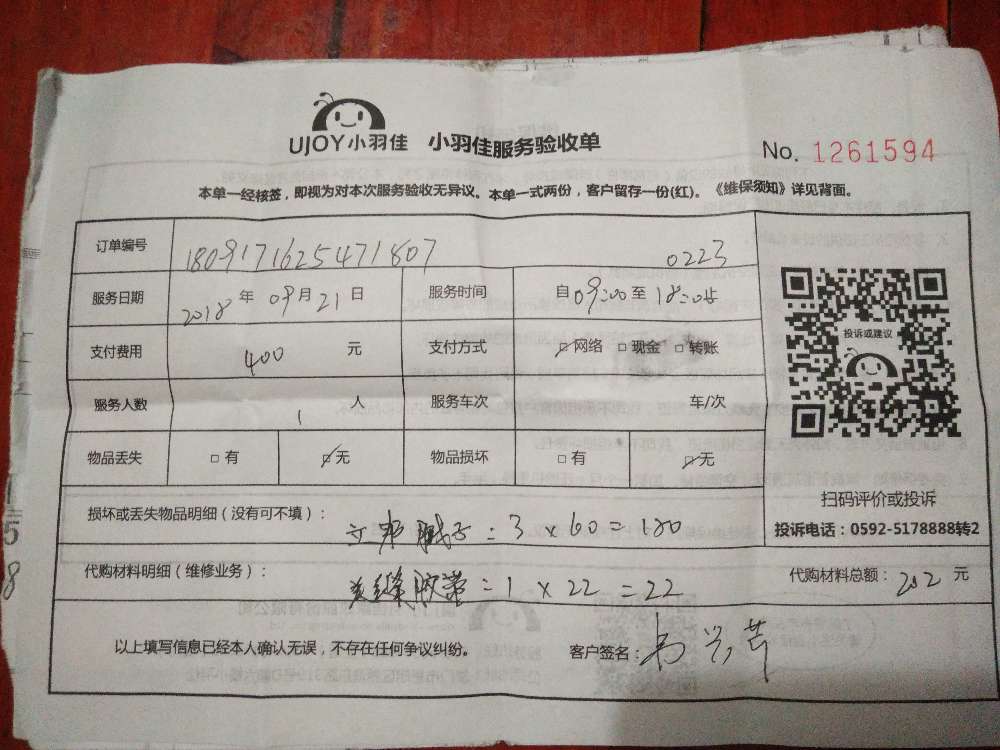 UJOY小羽佳 小羽佳服务验收单
No. 1261594
本单一经核签，即视为对本次服务验收无异议。本单一式两份，客户留存一份(红)。《维保须知》详见背面。
订单编号 1809171625471807 0223
服务日期 2018 年 09 月 21 日 服务时间 自 09:00 至 18:05
支付费用 400 元 支付方式 ☑网络 □现金 □转账
服务人数 1 人 服务车次 车/次
物品丢失 □有 ☑无 物品损坏 □有 ☑无
投诉或建议
扫码评价或投诉
投诉电话：0592-5178888转2
损坏或丢失物品明细（没有可不填）：
立邦腻子：3×60=180
代购材料明细（维修业务）： 代购材料总额：202 元
缝胶带：1×22=22
以上填写信息已经本人确认无误，不存在任何争议纠纷。 客户签名：